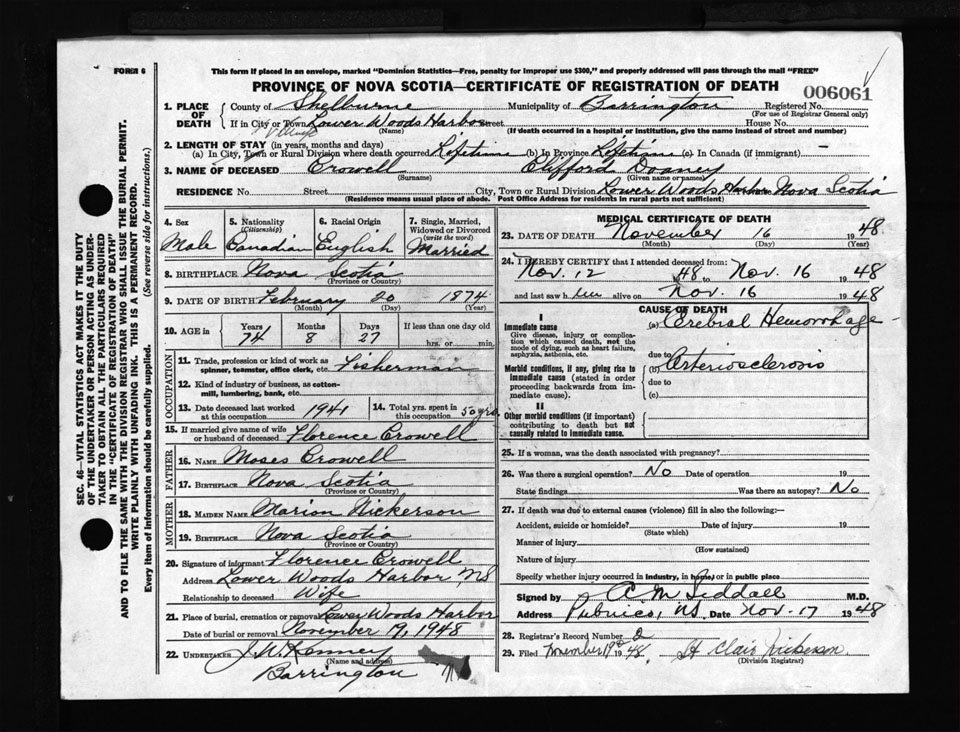 FORM 6
This form if placed in an envelope, marked "Dominion Statistics—Free, penalty for improper use $300," and properly addressed will pass through the mail "FREE"
PROVINCE OF NOVA SCOTIA—CERTIFICATE OF REGISTRATION OF DEATH
006061
1. PLACE OF DEATH
County of Shelburne Municipality of Barrington Registered No.
(For use of Registrar General only)
If in City or Town Lower Woods Harbor Street House No.
Village
(Name) (If death occurred in a hospital or institution, give the name instead of street and number)
2. LENGTH OF STAY (in years, months and days)
(a) In City, Town or Rural Division where death occurred Lifetime (b) In Province Lifetime (c) In Canada (if immigrant)
3. NAME OF DECEASED Crowell Clifford
(Surname) (Given name or names)
RESIDENCE No. Street City, Town or Rural Division Lower Woods Harbor Nova Scotia
(Residence means usual place of abode. Post Office Address for residents in rural parts not sufficient)
4. Sex Male
5. Nationality (Citizenship) Canadian
6. Racial Origin English
7. Single, Married, Widowed or Divorced (write the word) Married
8. BIRTHPLACE Nova Scotia
(Province or Country)
9. DATE OF BIRTH February 20 1874
(Month) (Day) (Year)
10. AGE in Years Months Days If less than one day old
74 8 27 hrs. or min.
OCCUPATION
11. Trade, profession or kind of work as spinner, teamster, office clerk, etc. Fisherman
12. Kind of industry or business, as cotton-mill, lumbering, bank, etc.
13. Date deceased last worked at this occupation 1941
14. Total yrs. spent in this occupation 50 yrs.
15. If married give name of wife or husband of deceased Florence Crowell
FATHER
16. NAME Moses Crowell
17. BIRTHPLACE Nova Scotia
(Province or Country)
MOTHER
18. MAIDEN NAME Marion Nickerson
19. BIRTHPLACE Nova Scotia
(Province or Country)
20. Signature of informant Florence Crowell
Address Lower Woods Harbor NS
Relationship to deceased Wife
21. Place of burial, cremation or removal Lower Woods Harbor
Date of burial or removal November 19, 1948
22. UNDERTAKER J. W. Kenney
(Name and address)
Barrington
MEDICAL CERTIFICATE OF DEATH
23. DATE OF DEATH November 16 1948
(Month) (Day) (Year)
24. I HEREBY CERTIFY that I attended deceased from:
Nov. 12 48 to Nov. 16 1948
and last saw him alive on Nov. 16 1948
CAUSE OF DEATH
I
Immediate cause
Give disease, injury or complication which caused death, not the mode of dying, such as heart failure, asphyxia, asthenia, etc.
(a) Cerebral Hemorrhage
due to
Morbid conditions, if any, giving rise to immediate cause (stated in order proceeding backwards from immediate cause).
(b) Arteriosclerosis
due to
(c)
II
Other morbid conditions (if important) contributing to death but not causally related to immediate cause.
25. If a woman, was the death associated with pregnancy?
26. Was there a surgical operation? No Date of operation 19
State findings Was there an autopsy? No
27. If death was due to external causes (violence) fill in also the following:—
Accident, suicide or homicide? Date of injury 19
(State which)
Manner of injury
(How sustained)
Nature of injury
Specify whether injury occurred in industry, in home, or in public place
Signed by A C M Siddall M.D.
Address Pubnico, NS Date Nov. 17 1948
28. Registrar's Record Number 2
29. Filed November 19th 1948. St Clair Nickerson.
(Division Registrar)
SEC. 46—VITAL STATISTICS ACT MAKES IT THE DUTY
OF THE UNDERTAKER OR PERSON ACTING AS UNDER-
TAKER TO OBTAIN ALL THE PARTICULARS REQUIRED
IN THE "CERTIFICATE OF REGISTRATION OF DEATH"
AND TO FILE THE SAME WITH THE DIVISION REGISTRAR WHO SHALL ISSUE THE BURIAL PERMIT.
WRITE PLAINLY WITH UNFADING INK. THIS IS A PERMANENT RECORD.
Every item of information should be carefully supplied. (See reverse side for instructions.)